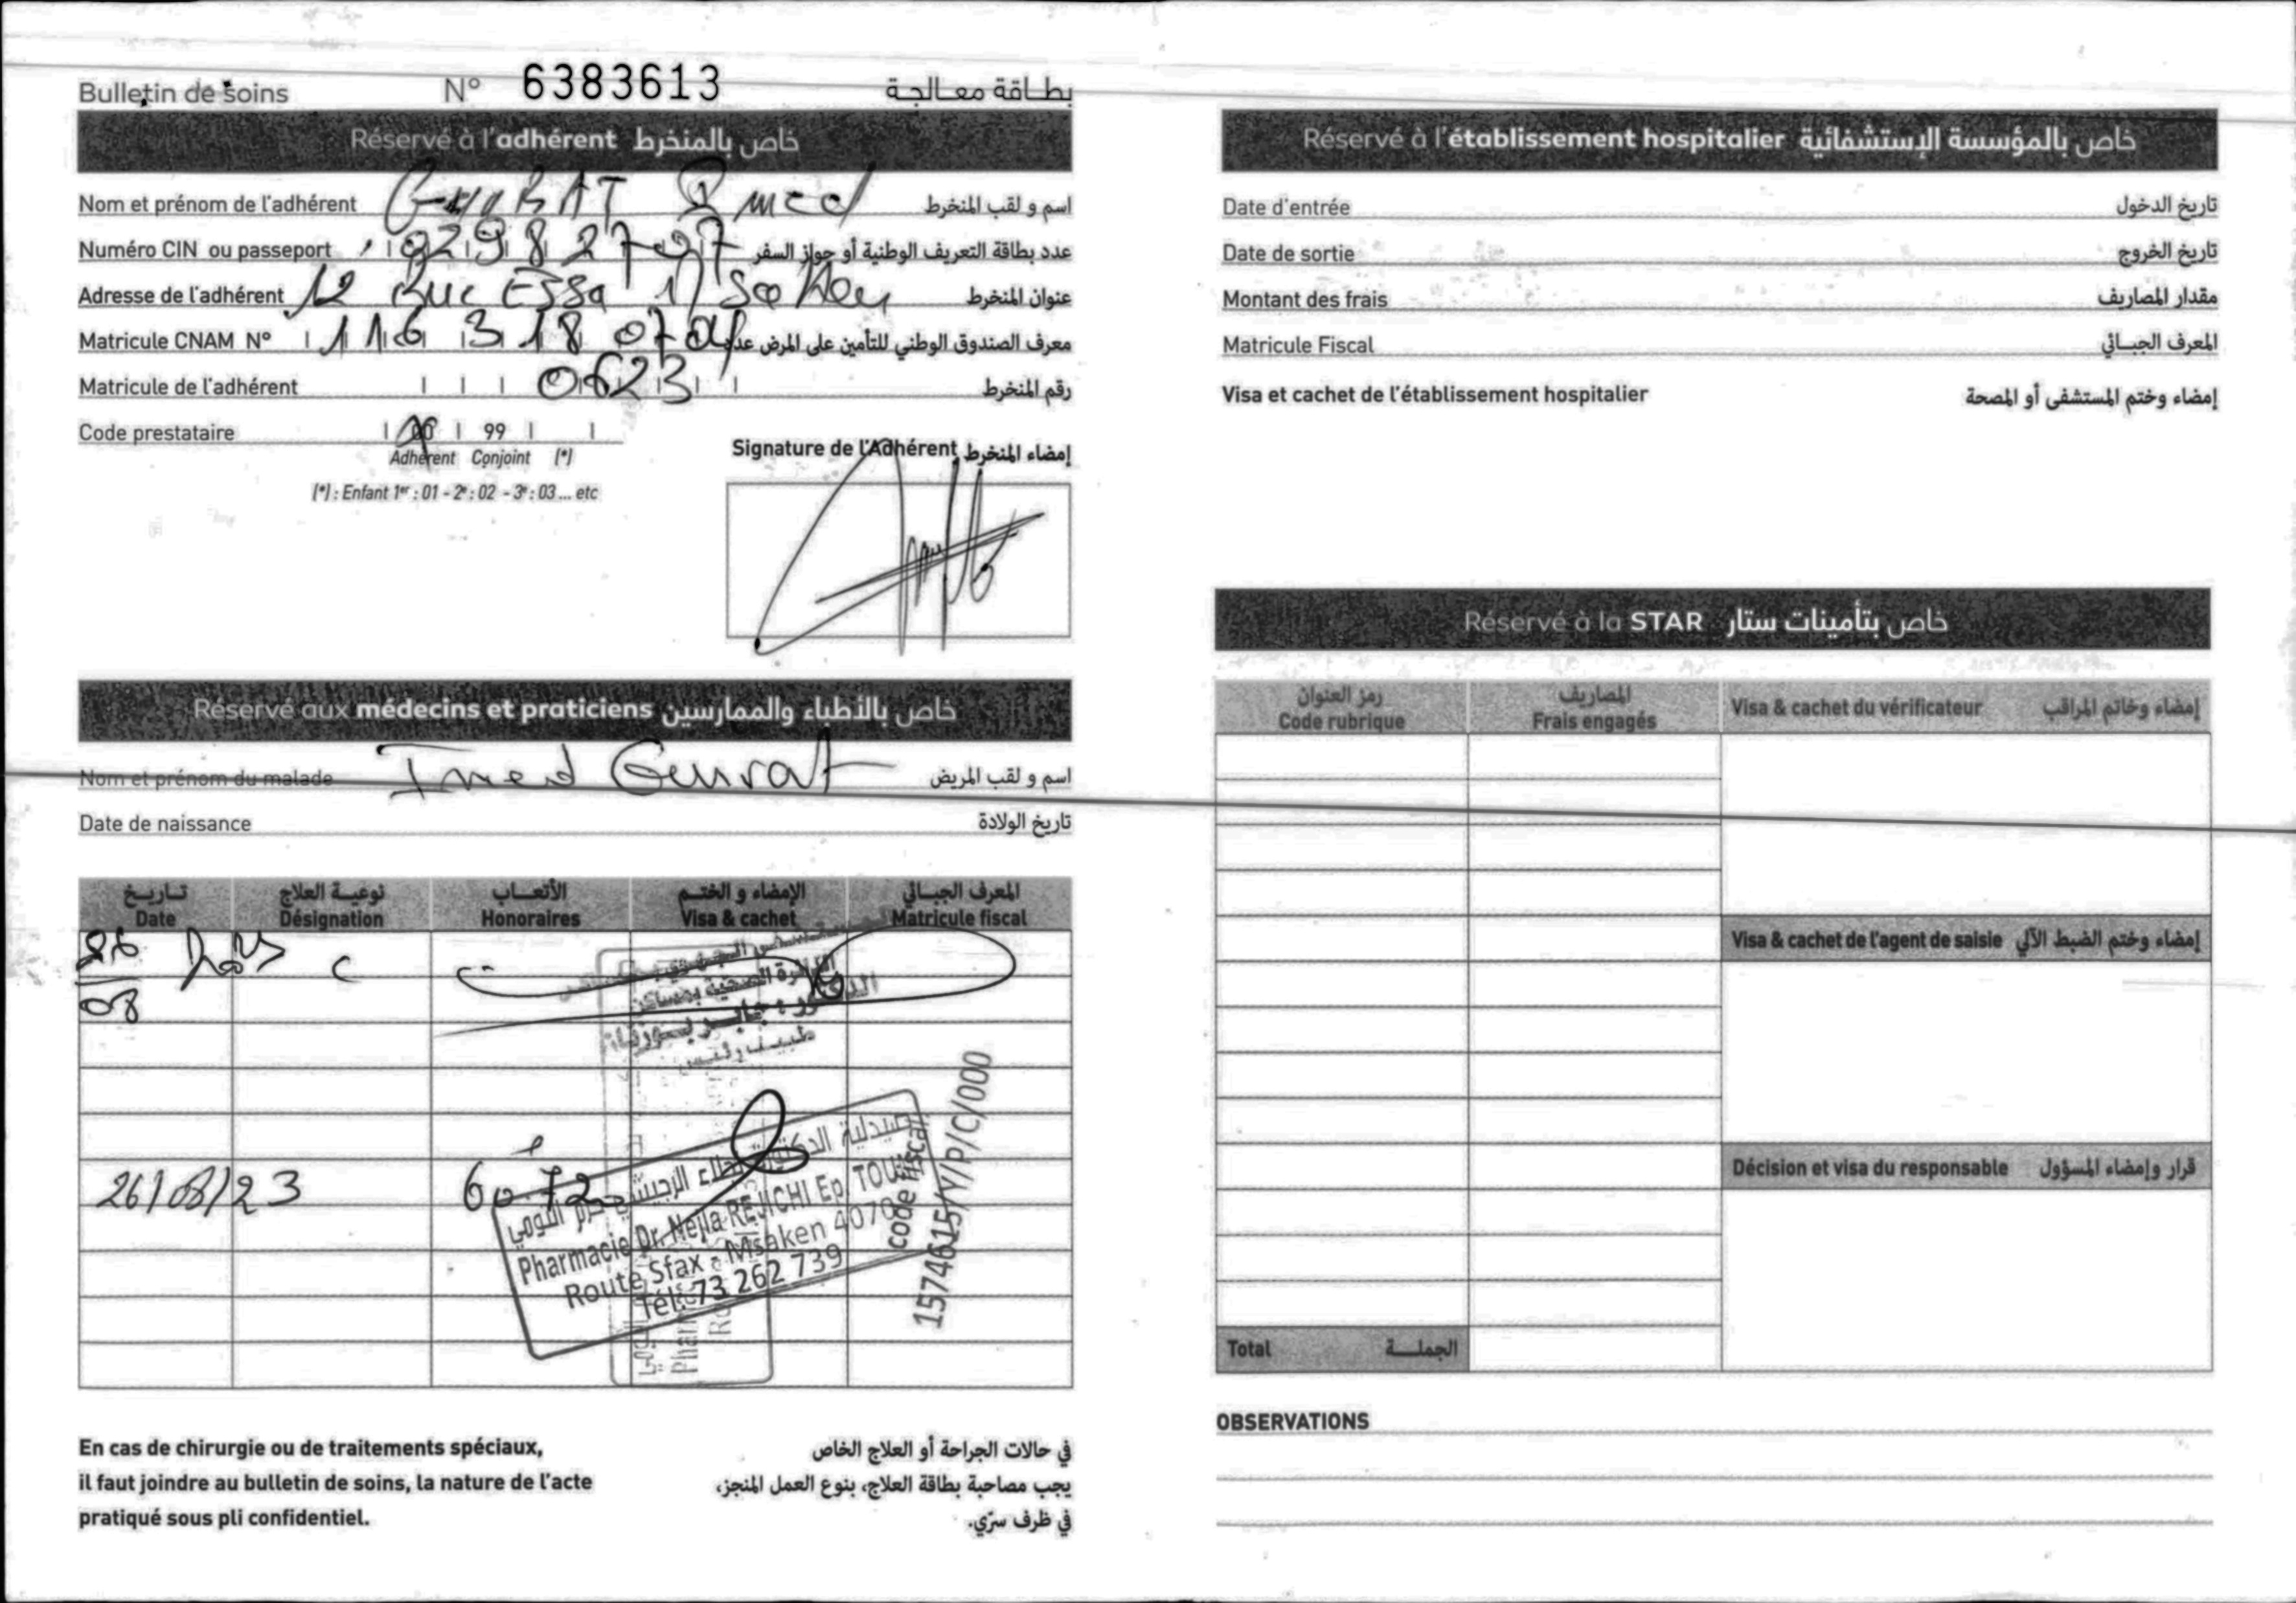 Bulletin de soins N° 6383613 بطاقة معالجة
Réservé à l'adhérent خاص بالمنخرط
Nom et prénom de l'adhérent GHURAT Imed اسم و لقب المنخرط
Numéro CIN ou passeport 02982797 عدد بطاقة التعريف الوطنية أو جواز السفر
Adresse de l'adhérent 12 Rue عنوان المنخرط
Matricule CNAM N° 116318 07 04 معرف الصندوق الوطني للتأمين على المرض عدد
Matricule de l'adhérent 0623 رقم المنخرط
Code prestataire 00 99
Adhérent Conjoint (*)
(*) : Enfant 1er : 01 - 2e : 02 - 3e : 03 ... etc
Signature de l'Adhérent إمضاء المنخرط
Réservé aux médecins et praticiens خاص بالأطباء والممارسين
Nom et prénom du malade Imed Gurat اسم و لقب المريض
Date de naissance تاريخ الولادة
تاريخ نوعية العلاج الأتعاب الإمضاء و الختم المعرف الجبائي
Date Désignation Honoraires Visa & cachet Matricule fiscal
26 C
08
طبيب رئيس
26/08/23 60,720
Pharmacie Dr. Nejla REJICHI Ep. TOUMI
Route Sfax - Msaken 4070
Tél: 73 262 739
code fiscal
1574615/Y/P/C/000
En cas de chirurgie ou de traitements spéciaux,
il faut joindre au bulletin de soins, la nature de l'acte
pratiqué sous pli confidentiel.
في حالات الجراحة أو العلاج الخاص
يجب مصاحبة بطاقة العلاج، بنوع العمل المنجز،
في ظرف سرّي.
Réservé à l'établissement hospitalier خاص بالمؤسسة الإستشفائية
Date d'entrée تاريخ الدخول
Date de sortie تاريخ الخروج
Montant des frais مقدار المصاريف
Matricule Fiscal المعرف الجبائي
Visa et cachet de l'établissement hospitalier إمضاء وختم المستشفى أو المصحة
Réservé à la STAR خاص بتأمينات ستار
رمز العنوان المصاريف
Code rubrique Frais engagés Visa & cachet du vérificateur إمضاء وخاتم المراقب
Visa & cachet de l'agent de saisie إمضاء وختم الضبط الآلي
Décision et visa du responsable قرار وإمضاء المسؤول
Total الجملة
OBSERVATIONS